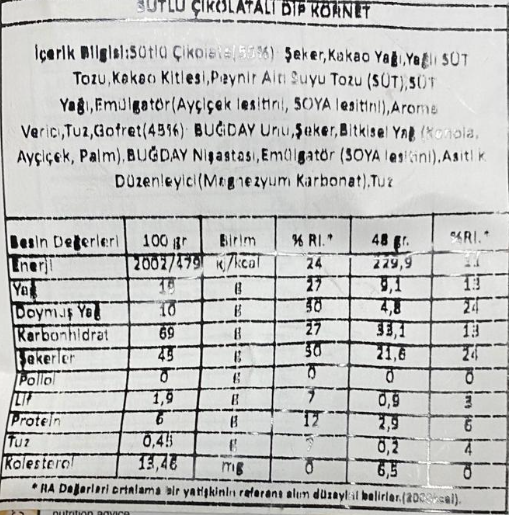 SÜTLÜ ÇİKOLATALI DİP KORNET
İçerik Bilgisi:Sütlü Çikolata(55%): Şeker,Kakao Yağı,Yağlı SÜT
Tozu,Kakao Kitlesi,Peynir Altı Suyu Tozu (SÜT),SÜT
Yağı,Emülgatör(Ayçiçek lesitini, SOYA lesitini),Aroma
Verici,Tuz,Gofret(45%): BUĞDAY Unu,Şeker,Bitkisel Yağ (Kanola,
Ayçiçek, Palm),BUĞDAY Nişastası,Emülgatör (SOYA lesitini),Asitlik
Düzenleyici(Magnezyum Karbonat),Tuz
Besin Değerleri 100 gr Birim % RI.* 48 gr. %RI.*
Enerji 2002/479 kj/kcal 24 229,9 11
Yağ 27 9,1 13
Doymuş Yağ 10 g 50 4,8 24
Karbonhidrat 69 g 27 33,1 13
Şekerler 45 g 50 21,6 24
Poliol 0 g 0 0 0
Lif 1,9 g 7 0,9 3
Protein 6 g 12 2,9 6
Tuz 0,45 g 0,2 4
Kolesterol 13,46 mg 0 6,5 0
* RA Değerleri ortalama bir yetişkinin referans alım düzeyini belirler.
nutrition advice